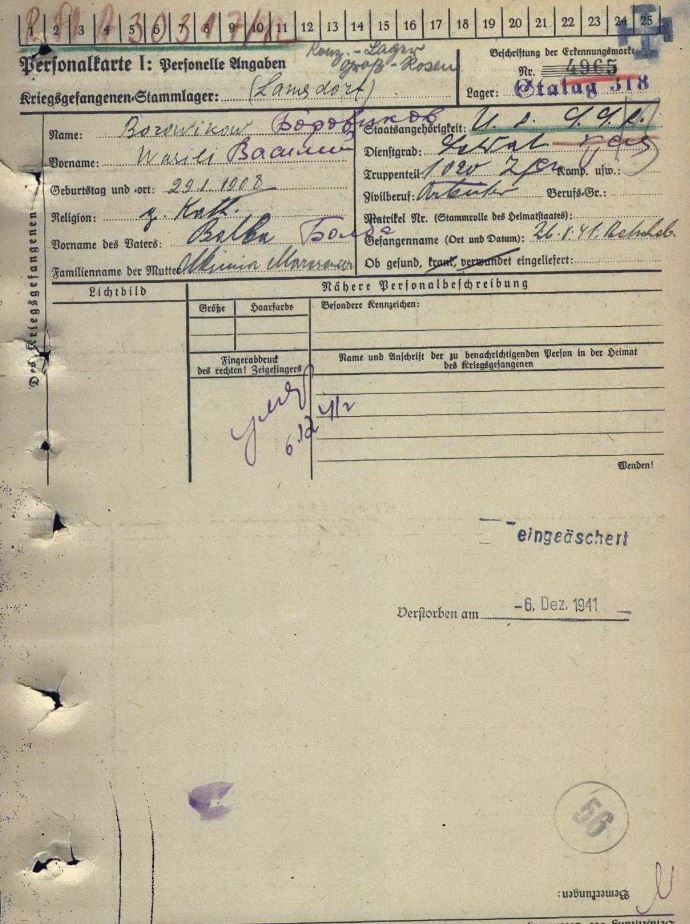 1 2 3 4 5 6 7 8 9 10 11 12 13 14 15 16 17 18 19 20 21 22 23 24 25
Konz.-Lager
Groß-Rosen
Personalkarte I: Personelle Angaben
Beschriftung der Erkennungsmarke
Nr. 4965
Kriegsgefangenen-Stammlager: (Lamsdorf)
Lager: Stalag 318
Des Kriegsgefangenen
Name: Borowikow Боровиков
Staatsangehörigkeit: U.d.S.S.R.
Vorname: Wasili Василий
Dienstgrad: Soldat
Geburtstag und -ort: 29.1.1908
Truppenteil: 1020 Komp. usw.:
Zivilberuf: Arbeiter Berufs-Gr.:
Religion: g. Kath.
Matrikel Nr. (Stammrolle des Heimatstaates):
Vorname des Vaters: Bolba Болба
Gefangennahme (Ort und Datum):
Familienname der Mutter:
Ob gesund, krank, verwundet eingeliefert:
Lichtbild
Nähere Personalbeschreibung
Größe Haarfarbe
Besondere Kennzeichen:
Fingerabdruck
des rechten! Zeigefingers
Name und Anschrift der zu benachrichtigenden Person in der Heimat
des Kriegsgefangenen
6.12.41
Wenden!
eingeäschert
Verstorben am -6. Dez. 1941
56
Bemerkungen: